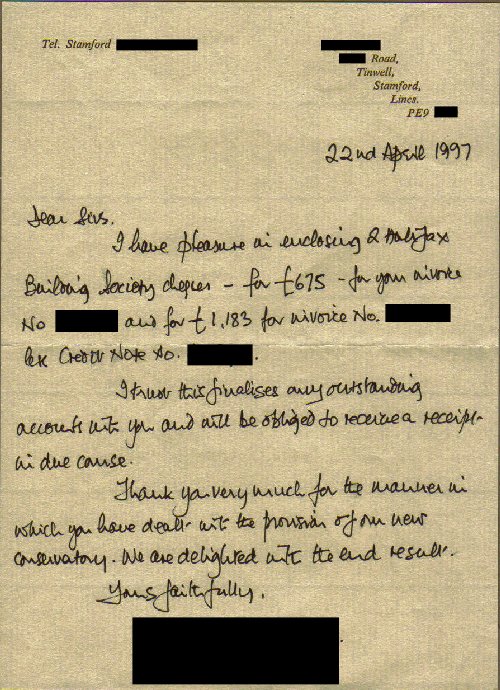 Tel. Stamford
Road,
Tinwell,
Stamford,
Lincs.
PE9
22nd April 1997
Dear Sirs.
I have pleasure in enclosing 2 Halifax
Building Society cheques - for £675 - for your invoice
No and for £1,183 for invoice No.
less Credit Note No. .
I trust this finalises any outstanding
accounts with you and will be obliged to receive a receipt
in due course.
Thank you very much for the manner in
which you have dealt with the provision of our new
conservatory. We are delighted with the end result.
Yours faithfully,